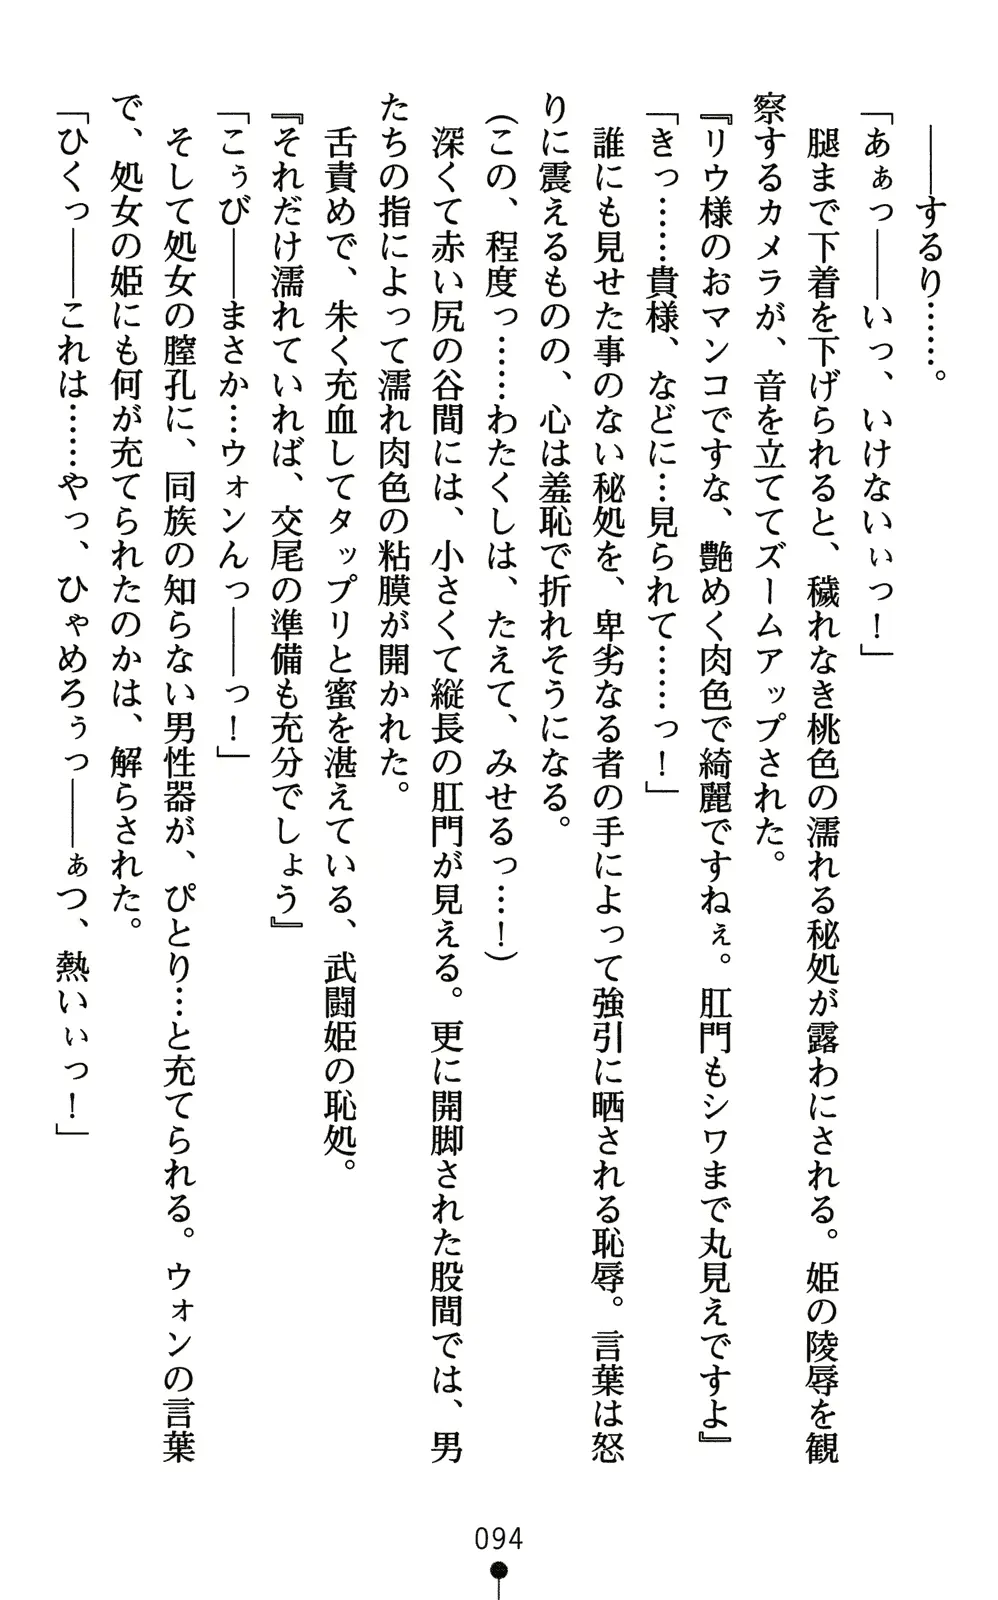 ――するり……。
「あぁっ――いっ、いけないぃっ！」
腿まで下着を下げられると、穢れなき桃色の濡れる秘処が露わにされる。姫の陵辱を観
察するカメラが、音を立ててズームアップされた。
『リウ様のおマンコですな、艶めく肉色で綺麗ですねぇ。肛門もシワまで丸見えですよ』
「きっ……貴様、などに…見られて……っ！」
誰にも見せた事のない秘処を、卑劣なる者の手によって強引に晒される恥辱。言葉は怒
りに震えるものの、心は羞恥で折れそうになる。
（この、程度っ……わたくしは、たえて、みせるっ…！）
深くて赤い尻の谷間には、小さくて縦長の肛門が見える。更に開脚された股間では、男
たちの指によって濡れ肉色の粘膜が開かれた。
舌責めで、朱く充血してタップリと蜜を湛えている、武闘姫の恥処。
『それだけ濡れていれば、交尾の準備も充分でしょう』
「こぅび――まさか…ウォンんっ――っ！」
そして処女の膣孔に、同族の知らない男性器が、ぴとり…と充てられる。ウォンの言葉
で、処女の姫にも何が充てられたのかは、解らされた。
「ひくっ――これは……やっ、ひゃめろぅっ――ぁつ、熱いぃっ！」
094